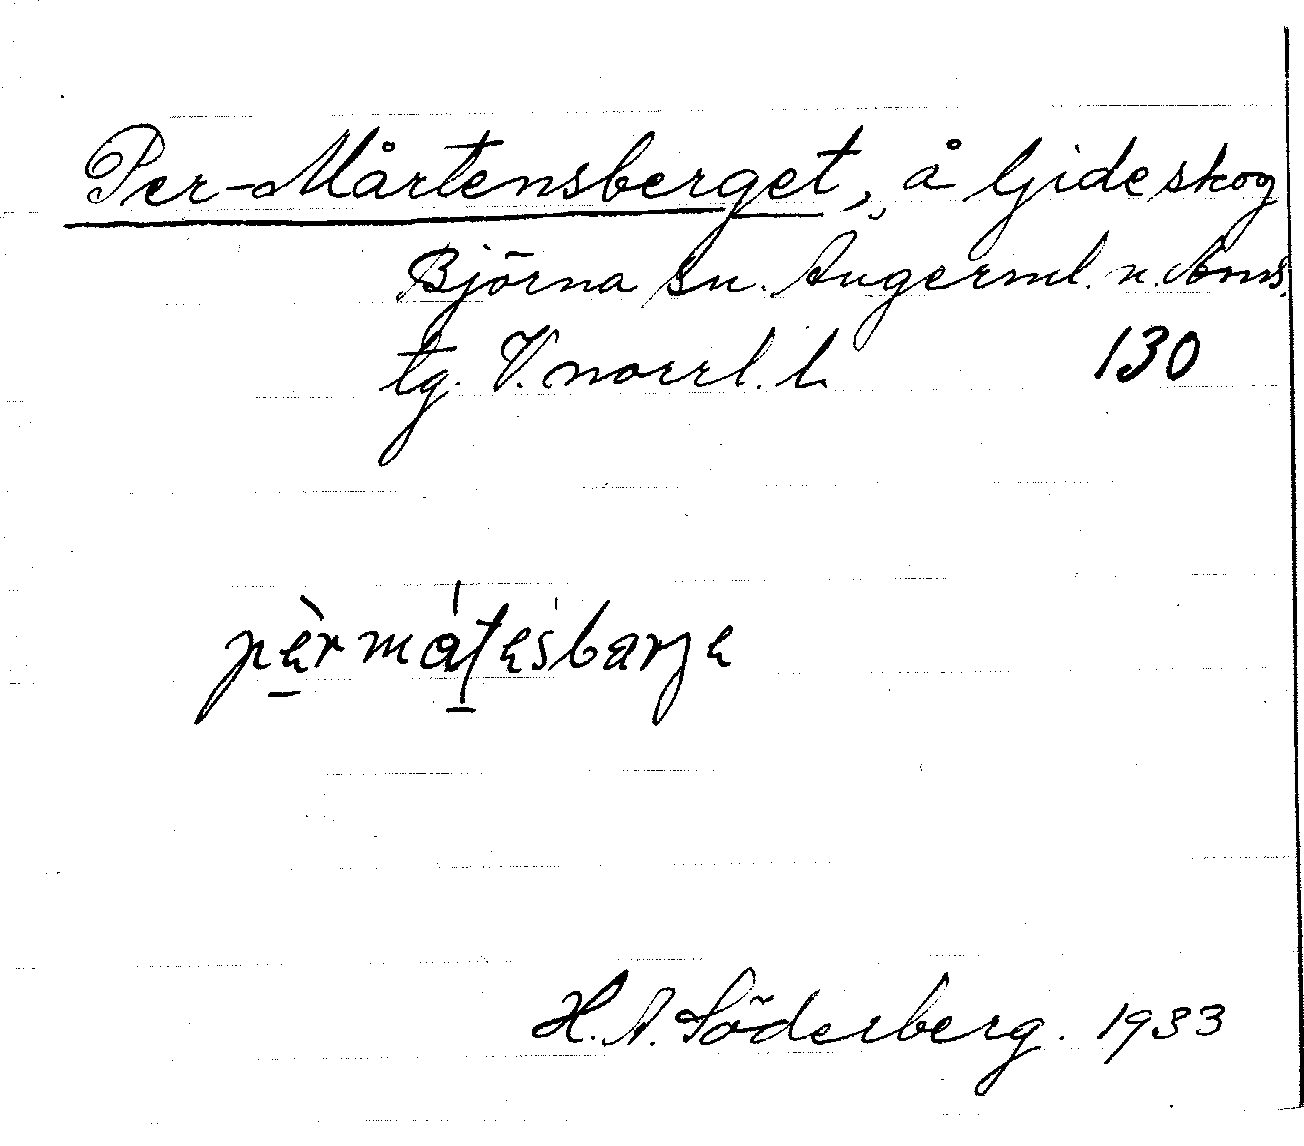 Per-Mårtensberget, å ljideskog
Björna sn. Ångerml. n. doms.
tg. V. norrl. l.
130
pèrmátesbarje
H. A. Söderberg. 1933